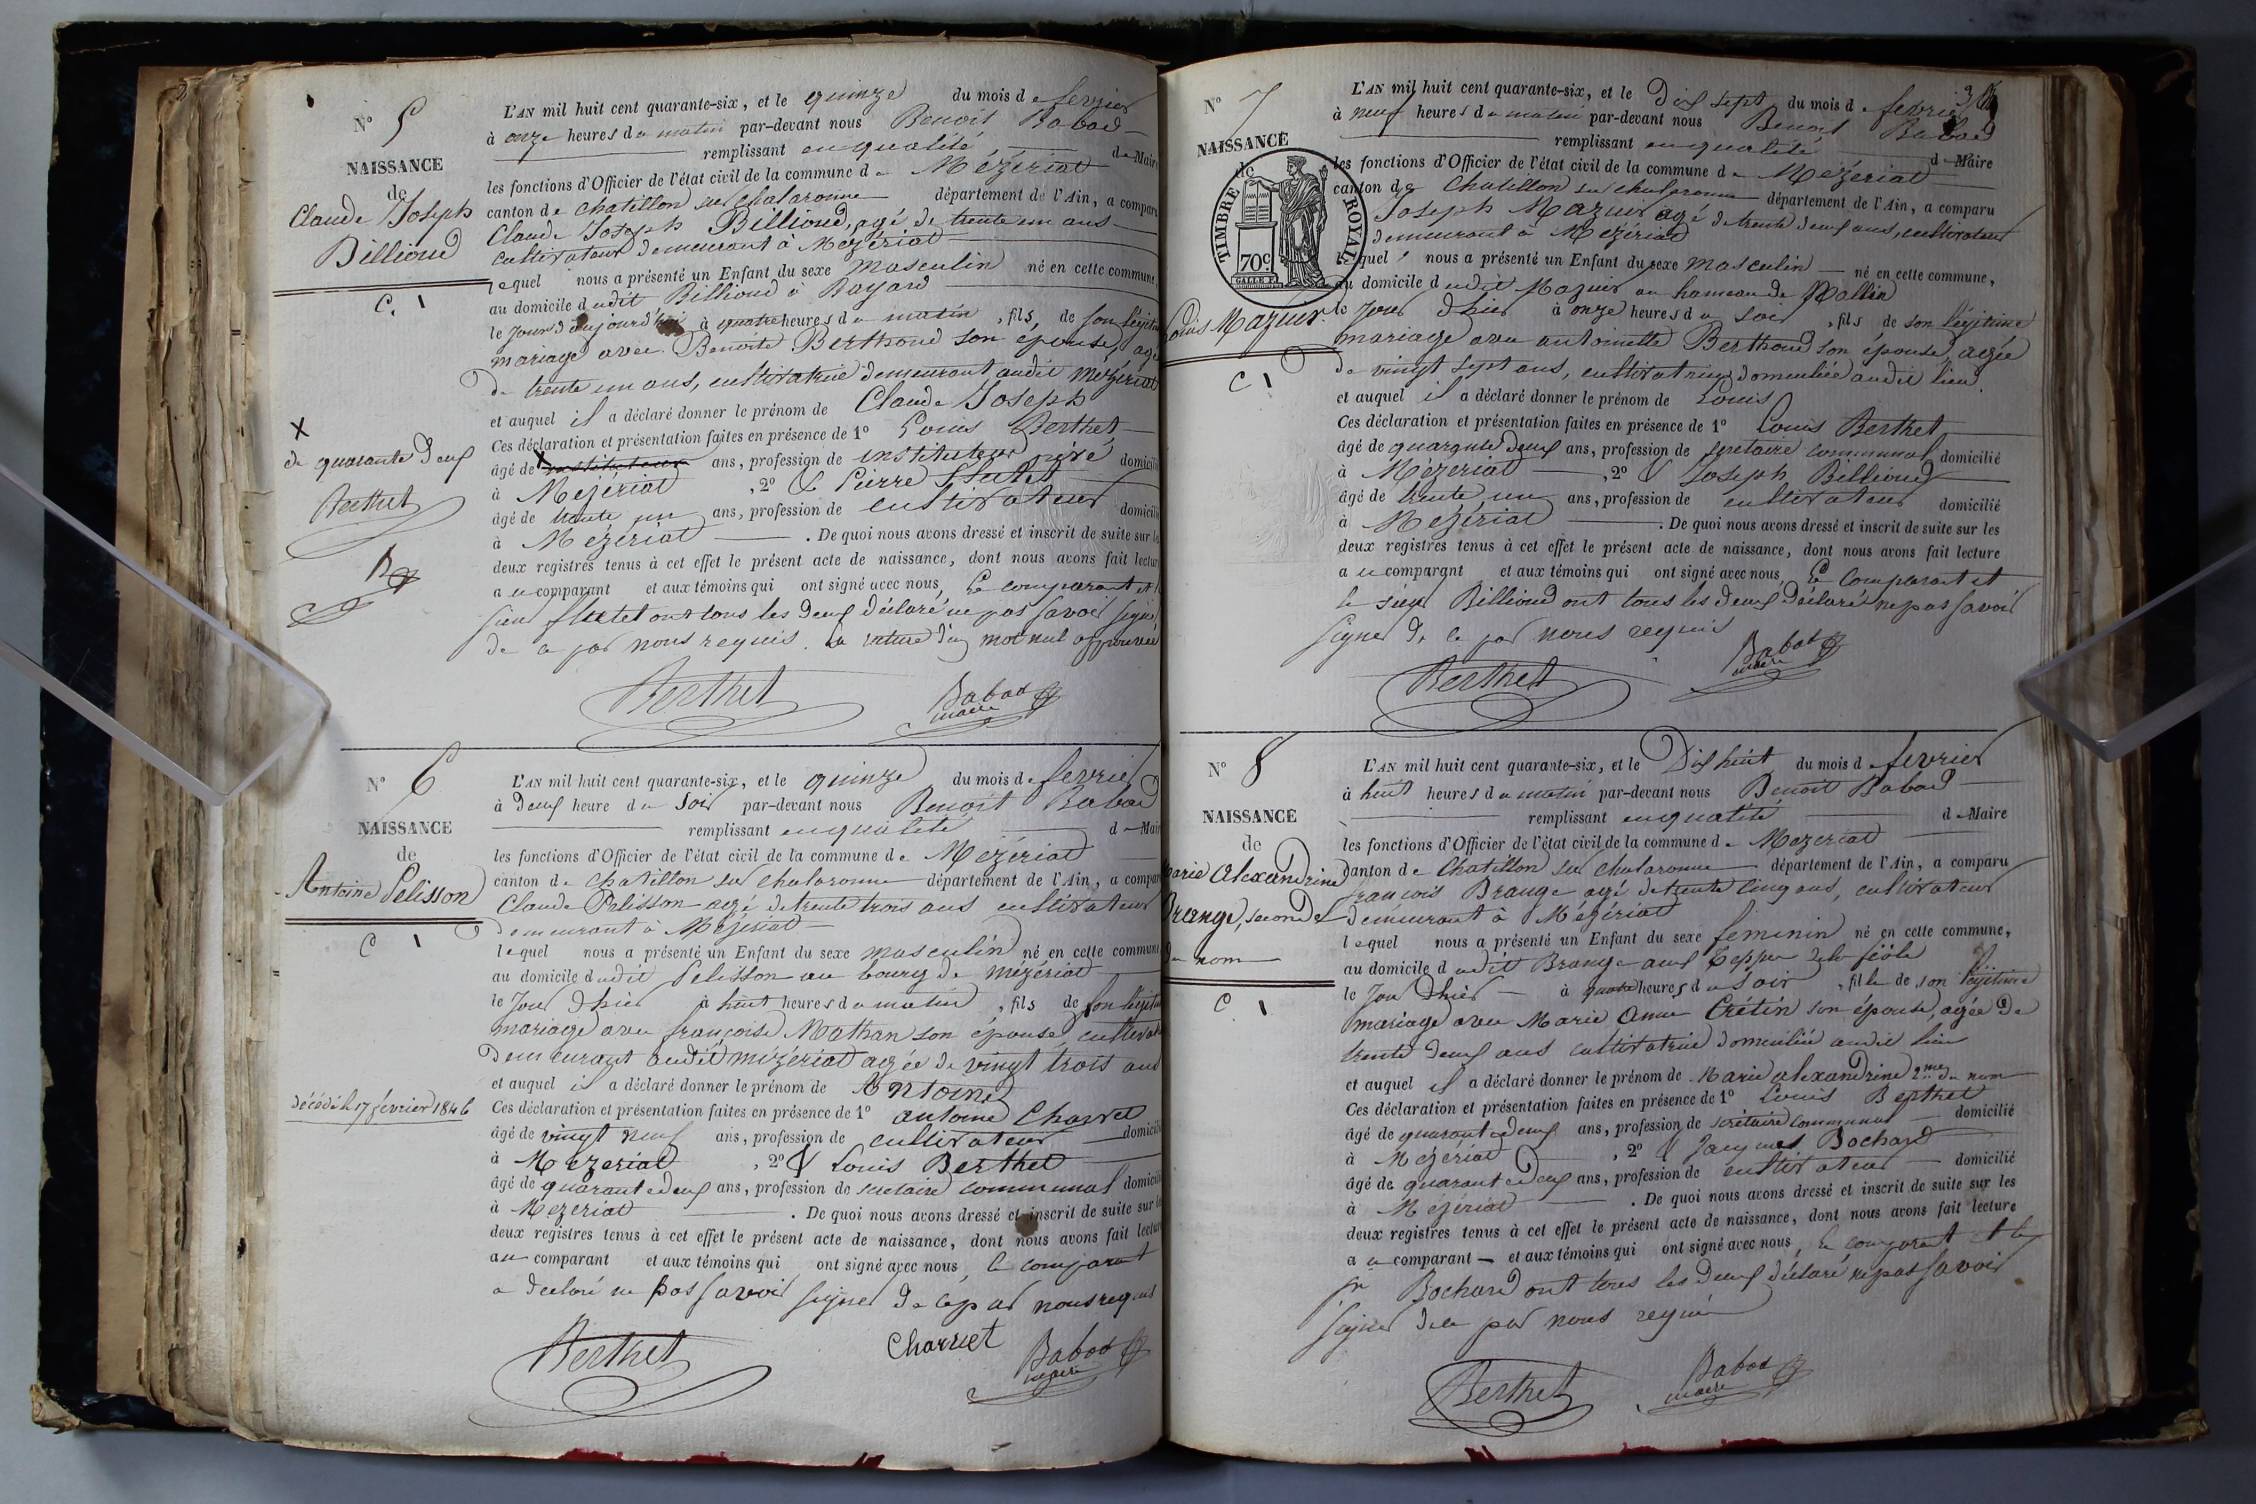 N° 5
NAISSANCE
de
Claude Joseph
Billioud
C. 1
X
de quarante deux
Berthet
B
L'AN mil huit cent quarante-six, et le quinze du mois de fevrier
à onze heures du matin par-devant nous Benoit Babad
remplissant en qualité de Maire
les fonctions d'Officier de l'état civil de la commune de Mézériat
canton de Chatillon sur chalaronne département de l'Ain, a comparu
Claude Joseph Billioud, agé de trente un ans
cultivateur demeurant à Mezériat
lequel nous a présenté un Enfant du sexe masculin né en cette commune,
au domicile dudit Billioud à Bayard
le Jour d'aujourd'hui à quatre heures du matin, fils, de son légitime
mariage avec Benoite Berthoud son épouse, agée
de trente un ans, cultivatrice demeurant audit Mézériat
et auquel il a déclaré donner le prénom de Claude Joseph
Ces déclaration et présentation faites en présence de 1° Louis Berthet
âgé de X instituteur ans, profession de instituteur privé domicilié
à Mézériat, 2° & Pierre Flutet
âgé de trente un ans, profession de cultivateur domicilié
à Mézériat. De quoi nous avons dressé et inscrit de suite sur les
deux registres tenus à cet effet le présent acte de naissance, dont nous avons fait lecture
au comparant et aux témoins qui ont signé avec nous, Le comparant et le
sieur flutet ont tous les deux déclaré ne pas savoir signer
de ce par nous requis. La rature d'un mot nul approuvée
Berthet Babad
maire
N° 6
NAISSANCE
de
Antoine Pelisson
C 1
décédé le 17 février 1846
L'AN mil huit cent quarante-six, et le quinze du mois de fevrier
à deux heure du soir par-devant nous Benoit Babad
remplissant en qualité de Maire
les fonctions d'Officier de l'état civil de la commune de Mézériat
canton de Chatillon sur chalaronne département de l'Ain, a comparu
Claude Pelisson agé de trente trois ans cultivateur
demeurant à Mézériat
lequel nous a présenté un Enfant du sexe masculin né en cette commune
au domicile dudit Pelisson au bourg de mézériat
le Jour d'hier à huit heures du matin, fils de son légitime
mariage avec françoise Mathan son épouse, cultivatrice
demeurant audit mézériat agée de vingt trois ans
et auquel il a déclaré donner le prénom de Antoine
Ces déclaration et présentation faites en présence de 1° antoine Charvet
âgé de vingt neuf ans, profession de cultivateur domicilié
à Mezeriat, 2° & Louis Berthet
âgé de quarante deux ans, profession de secretaire communal domicilié
à Mezeriat. De quoi nous avons dressé et inscrit de suite sur les
deux registres tenus à cet effet le présent acte de naissance, dont nous avons fait lecture
au comparant et aux témoins qui ont signé avec nous, le comparant
a déclaré ne pas savoir signer de ce par nous requis
Berthet Charvet Babad
maire
N° 7
NAISSANCE
de
TIMBRE ROYAL
70c
Louis Mazuir
C 1
L'AN mil huit cent quarante-six, et le Dix sept du mois de fevrier
à neuf heures du matin par-devant nous Benoit Babad
remplissant en qualité de Maire
les fonctions d'Officier de l'état civil de la commune de Mézériat
canton de Chatillon sur chalaronne département de l'Ain, a comparu
Joseph Mazuir agé de trente deux ans, cultivateur
demeurant à Mézériat
lequel nous a présenté un Enfant du sexe masculin né en cette commune,
au domicile dudit Mazuir au hameau de
le Jour d'hier à onze heures du soir, fils de son légitime
mariage avec antoinette Berthoud son épouse, agée
de vingt sept ans, cultivatrice domiciliée audit lieu
et auquel il a déclaré donner le prénom de Louis
Ces déclaration et présentation faites en présence de 1° Louis Berthet
âgé de quarante deux ans, profession de secretaire communal domicilié
à Mézériat, 2° & Joseph Billioud
âgé de trente un ans, profession de cultivateur domicilié
à Mézériat. De quoi nous avons dressé et inscrit de suite sur les
deux registres tenus à cet effet le présent acte de naissance, dont nous avons fait lecture
au comparant et aux témoins qui ont signé avec nous, Le Comparant et
le sieur Billioud ont tous les deux déclaré ne pas savoir
signer de ce par nous requis
Berthet Babad
maire
N° 8
NAISSANCE
de
Marie Alexandrine
Brange, seconde
du nom
C 1
L'AN mil huit cent quarante-six, et le Dix huit du mois de fevrier
à huit heures du matin par-devant nous Benoit Babad
remplissant en qualité de Maire
les fonctions d'Officier de l'état civil de la commune de Mezeriat
canton de Chatillon sur chalaronne département de l'Ain, a comparu
françois Brange agé de trente cinq ans, cultivateur
demeurant à Mézériat
lequel nous a présenté un Enfant du sexe feminin né en cette commune,
au domicile dudit Brange aux
le Jour d'hier à quatre heures du soir, fille de son légitime
mariage avec Marie Anne Crétin son épouse, agée de
trente deux ans cultivatrice domiciliée audit lieu
et auquel il a déclaré donner le prénom de Marie alexandrine 2me du nom
Ces déclaration et présentation faites en présence de 1° Louis Berthet
âgé de quarante deux ans, profession de secrétaire communal domicilié
à Mézériat, 2° & Jacques Bochard
âgé de quarante deux ans, profession de cultivateur domicilié
à Mézériat. De quoi nous avons dressé et inscrit de suite sur les
deux registres tenus à cet effet le présent acte de naissance, dont nous avons fait lecture
au comparant et aux témoins qui ont signé avec nous, le comparant et le
sr Bochard ont tous les deux déclaré ne pas savoir
signer de ce par nous requis
Berthet Babad
maire